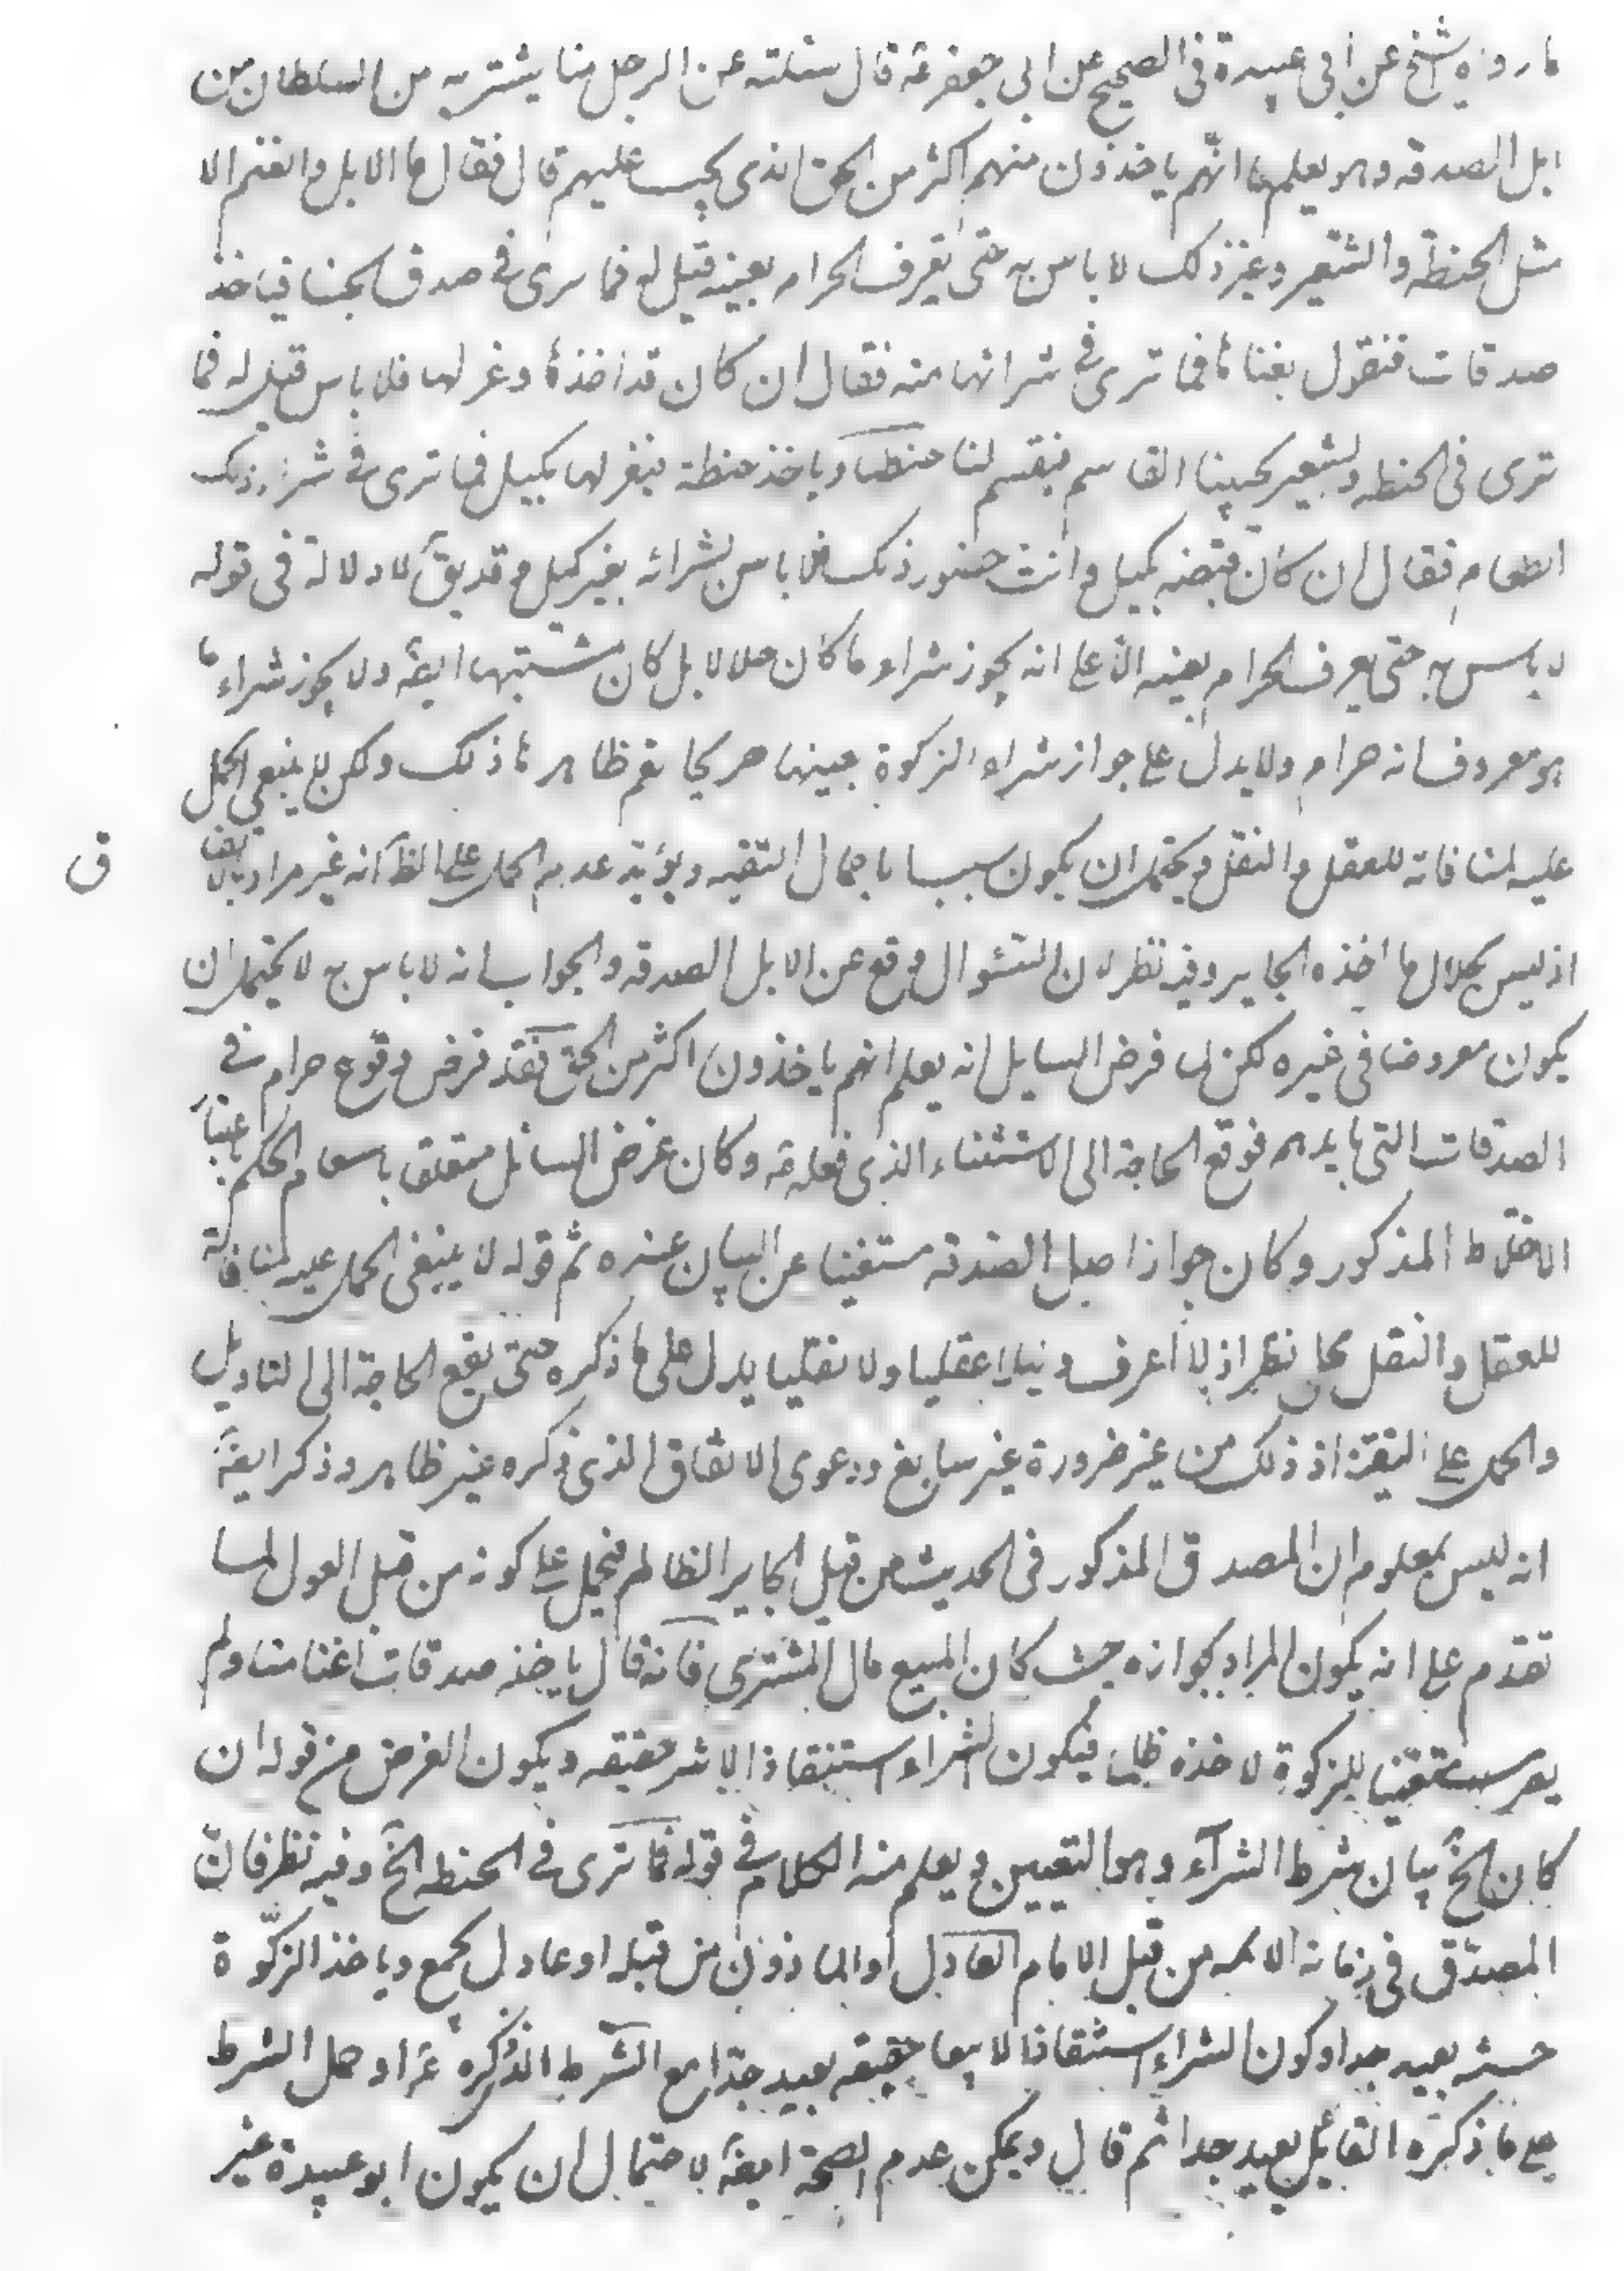 ما رواه الشيخ عن أبي عبيدة في الصحيح عن ابي جعفر عه قال سئلته عن الرجل منا يشتريه من السلطان من
ابل الصدقه وهو يعلمها انهم ياخذون منهم اكثر من الحق الذى يجب عليهم قال فقال ما الابل والغنم الا
مثل الحنطه والشعير وغير ذلك لا باس به حتى يعرف الحرام بعينه قيل له فما ترى في مصدق يجيئنا فياخذ
صدقات فنقول بعناها فما ترى في شرائها منه فقال ان كان قد اخذها وعزلها فلا باس قيل له فما
ترى في الحنطه والشعير يجيئنا القاسم فيقسم لنا حظنا وياخذ حنطه فيعزلها بكيل فما ترى في شراء ذلك
الطعام فقال ان كان قبضه بكيل وانت حضور ذلك فلا باس بشرائه بغير كيل وقد يقَ لا دلالة في قوله
لا باس به حتى يعرف الحرام بعينه الا على انه يجوز شراء ما كان حلالا بل كان مشتبها ايضَ ولا يجوز شراء ما
هو معروف انه حرام ولا يدل على جواز شراء الزكوة بعينها صريحا نعم ظاهرها ذلك ولكن لا ينبغي الحمل
عليه لمنافاته للعقل والنقل ويحتمل ان يكون سببا باجمال التقيه ويؤيد عدم الحمل على الظَ انه غير مراد
ق
اذ ليس بحلال ما اخذه الجاير وفيه نظر لان السئوال وقع عن الابل الصدقه والجواب انه لا باس به لا يحتمل ان
يكون معروضا في غيره لكن لما فرض السايل انه يعلم انهم ياخذون اكثر من الحق فقد فرض وقوع حرام في
الصدقات التي بايديهم فوقع الحاجة الى الاستثناء الذى فعله عه وكان غرض السائل متعلق باستعلام الحكم باعتبار
الاختلاط المذكور وكان جواز اصل الصدقه مستغنيا عن البيان عنده ثم قوله لا ينبغي الحمل عليه لمنافاته
للعقل والنقل محل نظر اذ لا اعرف دليلا عقليا ولا نقليا يدل على ما ذكره حتى يقع الحاجة الى التاويل
والحمل على التقية اذ ذلك من غير ضرورة غير سايغ ودعوى الاتفاق الذى ذكره غير ظاهر وذكر ايضَ
انه ليس بمعلوم ان المصدق المذكور في الحديث من قبل الجاير الظالم فيحمل على كونه من قبل العدل لما
تقدم على انه يكون المراد بجوازه حيث كان المبيع مال المشترى فانه قال ياخذ صدقات اغنامنا ولم
يصر متعينا للزكوة لاخذه ظلما فيكون الشراء استنقاذا لا شراء حقيقه ويكون الغرض من قوله ان
كان الخ بيان شرط الشرآء وهو التعيين ويعلم منه الكلام في قوله فما ترى في الحنطه الخ وفيه نظر فان
المصدق في زمانه الائمه من قبل الامام العادل او الماذون من قبله او عادل يجمع وياخذ الزكوة
حسبه بعيد جدا وكون الشراء استنقاذا لا بيعا حقيقه بعيد جدا مع الشرط الذى ذكره عَ او حمل الشرط
على ما ذكره القائل بعيد جدا ثم قال ويمكن عدم الصحة ايضَ لاحتمال ان يكون ابو عبيدة غير